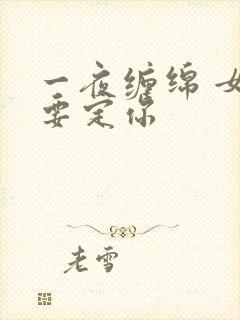 一夜缠绵 女
要定你
老雪